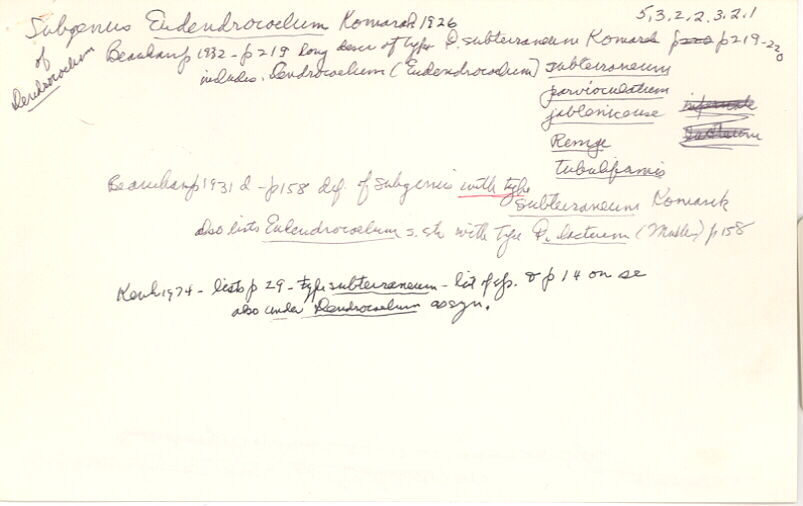 Subgenus Eudendrocoelum Komarek 1926
5.3.2.2.3.2.1
of Dendrocoelum
Beauchamp 1932 - p 219 long descr of type D. subterraneum Komarek p219-220
includes. Dendrocoelum (Eudendrocoelum) subterraneum
parvioculatum
jablanicense infernale
Remyi lacteum
tubuliferum
Beauchamp 1931 d - p158 def. of subgenus with type
subterraneum Komarek
also lists Eudendrocoelum s. str with type D. lacteum (Muller) p158
Kenk 1974 - lists p 29 - type subterraneum - list of sp. & p 14 on se
also under Dendrocoelum assgn.